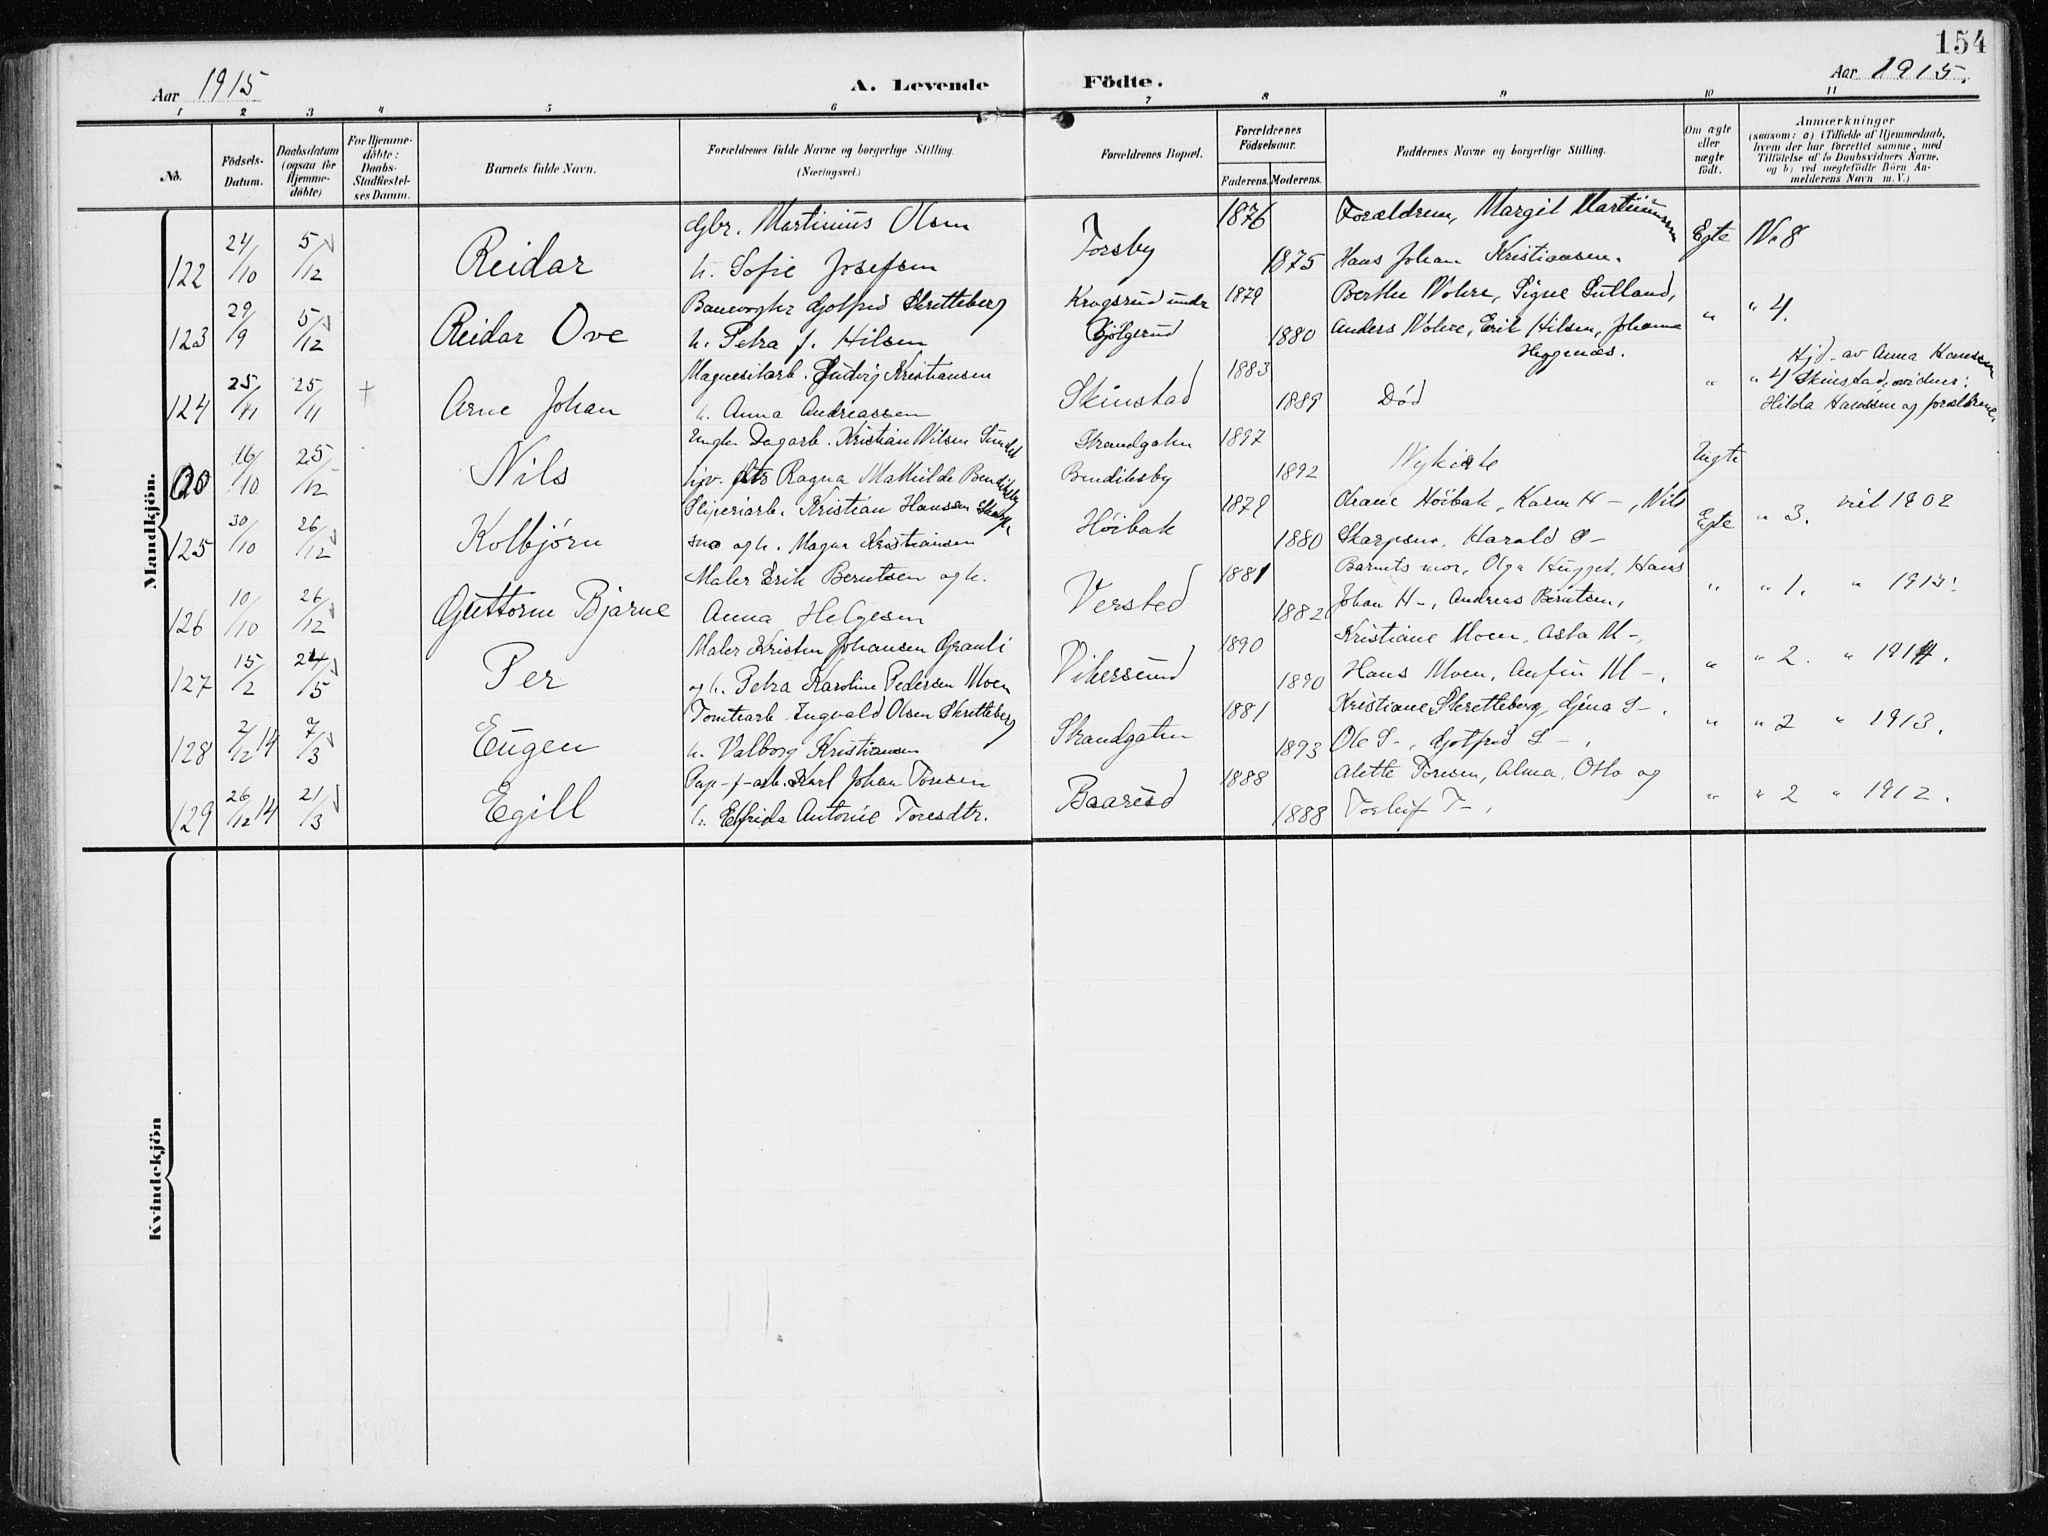 154
Aar 1915
A. Levende Födte.
Aar 1915.
1 2 3 4 5 6 7 8 9 10 11
No.
Födsels-Datum.
Daabsdatum (ogsaa för Hjemme-döbte)
For Hjemme-döbte: Daabs-Stadfæstel-ses Datum.
Barnets fulde Navn.
Forældrenes fulde Navne og borgerlige Stilling. (Næringsvei.)
Forældrenes Bopæl.
Forældrenes Födselsaar.
Faderens. Moderens.
Faddernes Navne og borgerlige Stilling.
Om ægte eller uægte födt.
Anmærkninger
(saasom: a) i Tilfælde af Hjemmedaab,
hvem der har forrettet samme, med
Tilföielse af to Daabsvidners Navne,
og b) ved uegtefödte Börn An-
melderens Navn m. V.)
Mandkjön.
122 24/10 5/12 Reidar Gbr. Martinius Olsen Torsby 1876 Forældrene, Margit Martinusen Egte No 8
h. Sofie Josefsen 1875 Hans Johan Kristiansen.
123 29/9 5/12 Reidar Ove Banevogter Gotfred Skretteberg Krogsrud undr 1879 Berthe Wolre, Signe Lutland, " " 4.
h. Petra f. Hilsen Gjølgerud 1880 Anders Wolre, Erik Hilsen, Johanna
Heggenæs.
124 25/11 25/11 + Arne Johan Magnesitarb. Ludvig Kristiansen Skinstad 1883 Død " " 4 Hjd. av Anna Hansen
h. Anna Andreassen 1889 Skinstad, vidner:
Hilda Hanssen og forældrene.
00 16/10 25/12 Nils Ungk. Dagarb. Kristian Nilsen Strandgaten 1897 Nykirke Uegte
pike Ragna Mathilde Bendiksby Bendiksby 1892
125 30/10 26/12 Kolbjørn Sliperiarb. Kristian Hanssen Skarps- Høibak 1879 Høibak, Karen H-, Nils Egte " 3. viet 1902
sno og h. Magna Kristiansen 1880 Skarpsno, Harald S-
126 10/10 26/12 Guttorm Bjarne Maler Erik Berntsen og h. Versted 1881 Barnets mor, Olga Hugget, Hans " " 1. " 1915.
Anna Helgesen 1882 Johan H-, Andreas Berntsen,
127 15/2 24/5 Per Maler Kristen Johansen Grauli Vikersund 1890 Kristiane Moen, Asta M-, " " 2. " 1914.
og h. Petra Karoline Pedersen Moen 1890 Hans Moen, Anfin M-.
128 2/12 14 7/3 Eugen Tomtearb. Ingvald Olsen Skretteberg Strandgaten 1881 Kristiane Skretteberg, Gina S-. " " 2 " 1913.
h. Valborg Kristiansen 1893 Ole S-, Gotfred S-,
129 26/12 14 21/3 Egill Pap-f-arb. Karl Johan Toresen Baarud 1888 Alette Toresen, Alma, Oslo og " " 2 " 1912.
h. Elfrida Antonie Toresdtr. 1888 Torleif T-,
Kvindekjön